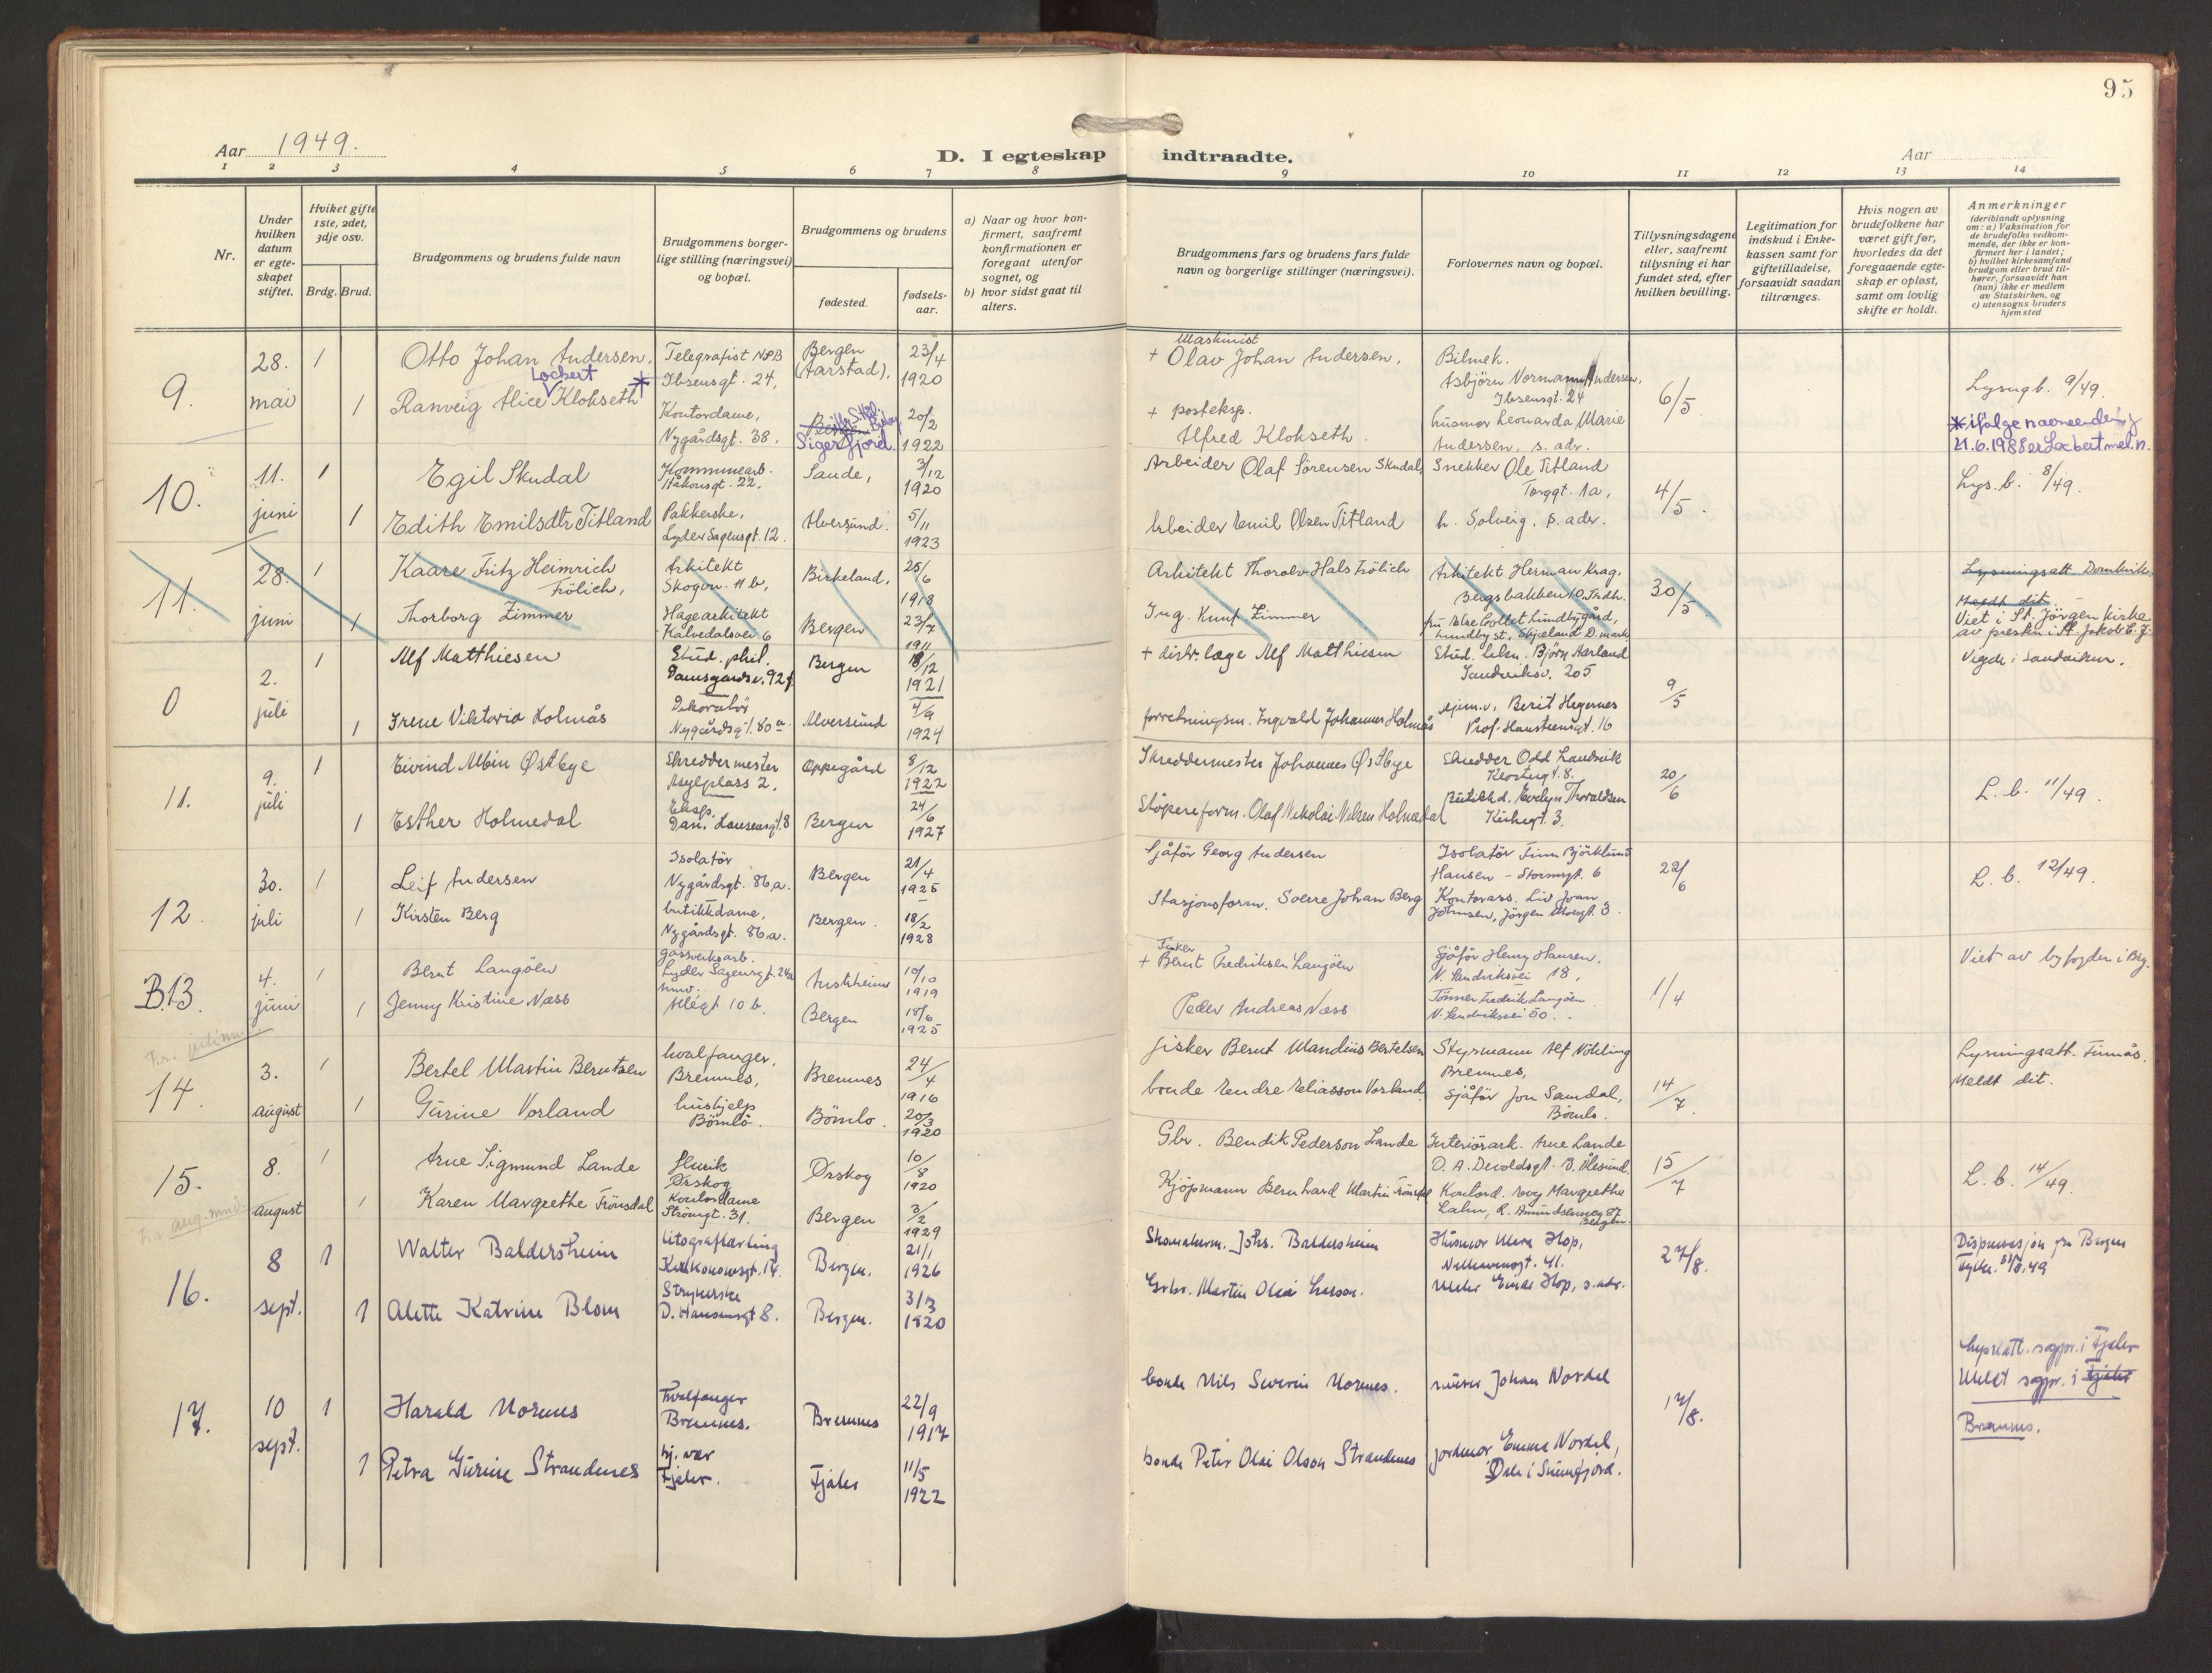 95
Aar 1949.
D. I egteskap indtraadte.
Aar
1 2 3 4 5 6 7 8 9 10 11 12 13 14
Nr.
Under hvilken datum er egteskapet stiftet.
Hvilket gifte 1ste, 2det, 3dje osv.
Brdg. Brud.
Brudgommens og brudens fulde navn
Brudgommens borgerlige stilling (næringsvei) og bopæl.
Brudgommens og brudens
fødested.
fødselsaar.
a) Naar og hvor konfirmert, saafremt konfirmationen er foregaat utenfor sognet, og
b) hvor sidst gaat til alters.
Brudgommens fars og brudens fars fulde navn og borgerlige stillinger (næringsvei).
Forlovernes navn og bopæl.
Tillysningsdagene eller, saafremt tillysning ei har fundet sted, efter hvilken bevilling.
Legitimation for indskud i Enkekassen samt for giftetilladelse, forsaavidt saadan tiltrænges.
Hvis nogen av brudefolkene har været gift før, hvorledes da det foregaaende egteskap er opløst, samt om lovlig skifte er holdt.
Anmerkninger
(deriblandt oplysning om: a) Vaksination for de brudefolks vedkommende, der ikke er konfirmert her i landet;
b) hvilket kirkesamfund brudgom eller brud tilhører, forsaavidt han (hun) ikke er medlem av Statskirken, og
c) utensogns bruders hjemsted
9. 28. mai 1
Otto Johan Andersen. Telegrafist NSB Ibsensgt. 24, Bergen (Aarstad). 23/4 1920
Maskinist + Olav Johan Andersen. Bilmek. Asbjörn Normann Andersen, Ibsensgt. 24 6/5 Lysngb. 9/49.
1 Ranveig Alice Lockert Klokseth * Kontordame, Nygårdsgt. 38. Sigerfjord. 20/2 1922
+ posteksp. Alfred Klokseth. husmor Leonarda Marie Andersen, s. adr.
* ifølge navneendring 21.6.1988 er Lockert mel.n.
10. 11. juni 1
Egil Skudal Kommunearb. Håkonsgt. 22, Sande, 3/12 1920
Arbeider Olaf Sörensen Skudal, Snekker Ole Titland Torggt. 1a, 4/5 Lys.b. 8/49.
1 Edith Emilsdtr Titland Pakkerske, Lyder Sagensgt. 12. Alversund. 5/11 1923
Arbeider Emil Olsen Titland h. Solveig, s. adr.
11. 28. juni 1
Kaare Fritz Heimrich Frölich, Arkitekt Skogvn. 11 b, Birkeland, 25/6 1918
Arkitekt Thorolv Hals Frölich Arkitekt Herman Krag, Bergsbakken 10, Trdh. 30/5
1 Thorborg Zimmer Hagearkitekt Kalvedalsvei 6 Bergen 23/7 1911
Ing. Knut Zimmer fru Else Collet Lundbygård, Lundby st, Sjælland D.mark
Viet i St. Jörgen kirke av presten i St. Jakob
0 2. juli 1
Alf Matthiesen Stud. phil. Damsgårdsv. 92 Bergen 18/12 1921
+ distr. læge Alf Matthiesen Stud. Björn Aarland Sandviksv. 205 9/5 Vigde i Sandviken.
1 Irene Viktoria Holmås Dekoratör Nygårdsgt. 80 a. Alversund 4/9 1924
forretningsm. Ingvald Johannes Holmås Berit Hegernes Prof. Hansteensgt. 16
11. 9. juli 1
Eivind Albin Østbye Skreddermester Asylplass 2. Oppegård 8/12 1922
Skreddermester Johannes Østbye Skredder Odd Landvik Klostergt. 8. 20/6 L. b. 11/49.
1 Esther Holmedal Eksp. Dan. Hansensgt. 8 Bergen 24/6 1927
Støpereform. Olaf Nikolai Nilsen Holmedal Butikkd. Evelyn Thoraldsen Kirkegt. 3.
12. 30. juli 1
Leif Andersen Isolatör Nygårdsgt. 86 a. Bergen 21/4 1925
Sjåför Georg Andersen Isolatör Finn Björklund Hansen - Stormsgt. 6 22/6 L. b. 12/49.
1 Kirsten Berg butikkdame, Nygårdsgt. 86 a. Bergen. 18/2 1928
Stasjonsform. Sverre Johan Berg Kontorass. Liv Joan Johnsen, Jörgen Moesgt. 3.
B.13. 4. juni 1
Bernt Langöen gassverksarb. Lyder Sagensgt. 24a Austrheim 10/10 1919
Fisker + Bernt Fredriksen Langöen Sjåför Henry Hansen, N. Landviksvei 18, 1/4 Viet av byfogden i Brg.
1 Jenny Kristine Næss Allégt 10 b. Bergen 18/6 1925
Peder Andreas Næss Tönner Fredrik Langöen N. Landviksvei 50.
14. 3. august 1
Bertel Martin Berntsen hvalfanger, Bremnes, Bremnes 24/4 1916
fisker Bernt Mandius Bertelsen Styrmann Alf Nökling Bremnes, 14/7. Lysningsatt. Finnås. Meldt dit.
1 Gurine Vorland hushjelp Bömlo. Bömlo. 20/3 1920
bonde Endre Eliasson Vorland sjåför Jon Samdal, Bömlo.
15. 8. august 1
Arne Sigmund Lande Ørskog Ørskog 10/8 1920
Gbr. Bendik Pederson Lande Interiörark. Arne Lande O. A. Devoldsgt. Ålesund. 15/7 L. b. 14/49.
1 Karen Margrethe Frönsdal Kontordame Strömgt. 31. Bergen 3/2 1929
Kjöpmann Bernhard Martin Frönsdal Kontord. Margrethe Lahn, R. Amundsensvei 87 Bergen
16. 8 sept. 1
Walter Baldersheim Litograflærling Bergen. 21/1 1926
Skomakerm. Johs. Baldersheim Husmor Hop, 41. 27/8. Dispensasjon fra Bergen Fylke. 31/8.49
1 Alette Katrine Blom Strykerske D. Hansensgt 8. Bergen. 31/3 1920
Grbr. Martin Olai Larson. Einar Hop, s. adr.
17. 10 sept. 1
Harald Mornes Hvalfanger Bremnes. Bremnes 22/9 1917
bonde Nils Severin Mornes. murer Johan Nordal 17/8. Lysn.att. sogpr. i Fjaler Meldt sogpr. i Fjaler Bremnes.
1 Petra Gurine Strandenes hj. vær Fjaler. Fjaler 11/5 1922
bonde Peter Olai Olson Strandenes jordmor Emma Nordal, Dale i Sunnfjord.